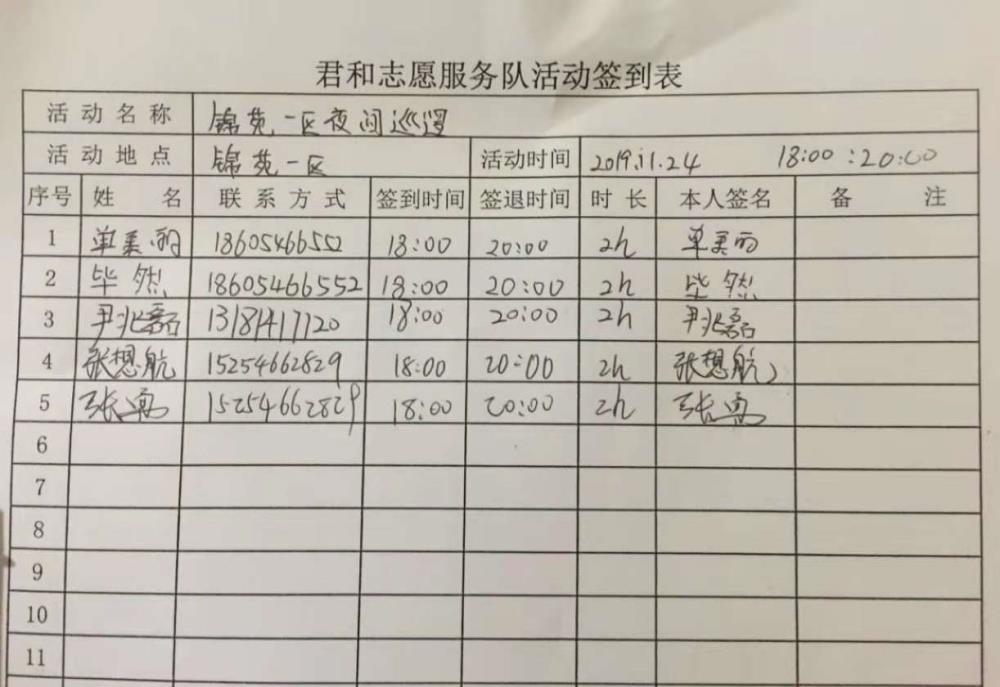 君和志愿服务队活动签到表
活动名称 锦苑一区夜间巡逻
活动地点 锦苑一区 活动时间 2019.11.24 18:00:20:00
序号 姓名 联系方式 签到时间 签退时间 时长 本人签名 备注
1 单美丽 18605466552 18:00 20:00 2h 单美丽
2 毕然 18605466552 18:00 20:00 2h 毕然
3 尹兆磊 13181417120 18:00 20:00 2h 尹兆磊
4 张想航 15254662829 18:00 20:00 2h 张想航
5 张 15254662829 18:00 20:00 2h 张
6
7
8
9
10
11